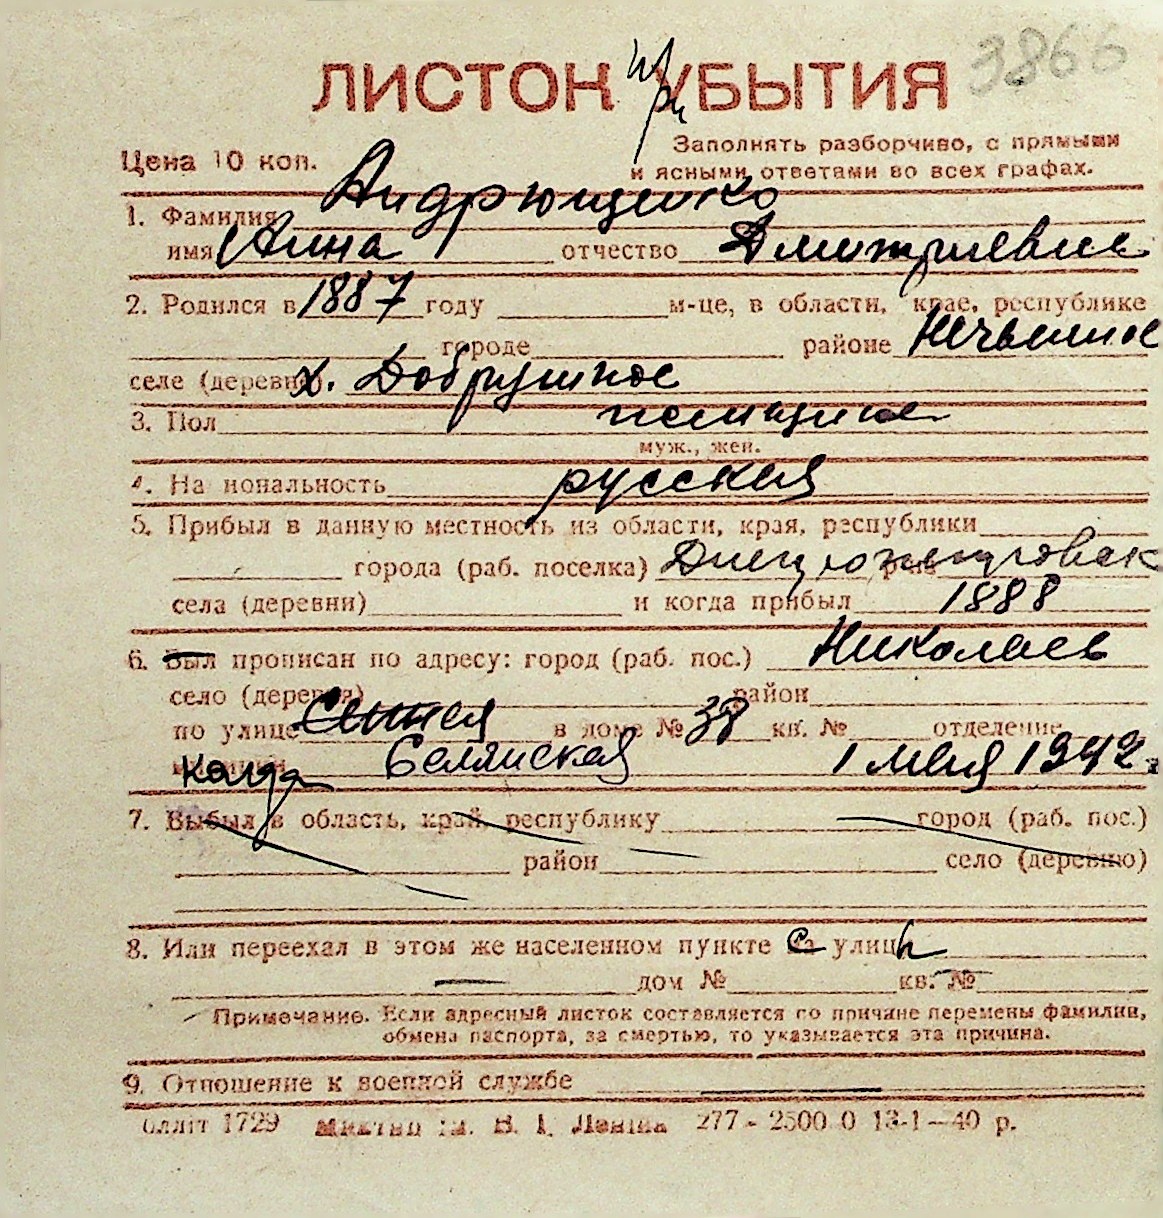 3866
ЛИСТОК при УБЫТИЯ
Цена 10 коп.
Заполнять разборчиво, с прямыми
и ясными ответами во всех графах.
1. Фамилия Андрющенко
имя Анна отчество Дмитриевна
2. Родился в 1887 году м-це, в области, крае, республике
городе районе Нечьяное
селе (деревне) х. Добрушное
3. Пол женщина
муж., жен.
4. На нональность русская
5. Прибыл в данную местность из области, края, республики
города (раб. поселка) Днепропетровск
села (деревни) и когда прибыл 1888
6. Был прописан по адресу: город (раб. пос.) Николаев
село (деревня) район
по улице Сенная в доме № 38 кв. № отделение
когда 1 мая 1942.
7. Выбыл в область, край, республику город (раб. пос.)
район село (деревню)
8. Или переехал в этом же населенном пункте с улицы
дом № кв. №
Примечание. Если адресный листок составляется по причине перемены фамилии,
обмена паспорта, за смертью, то указывается эта причина.
9. Отношение к военной службе
1729 им. В. І. Леніна 277 - 2500 0 13-1-40 р.